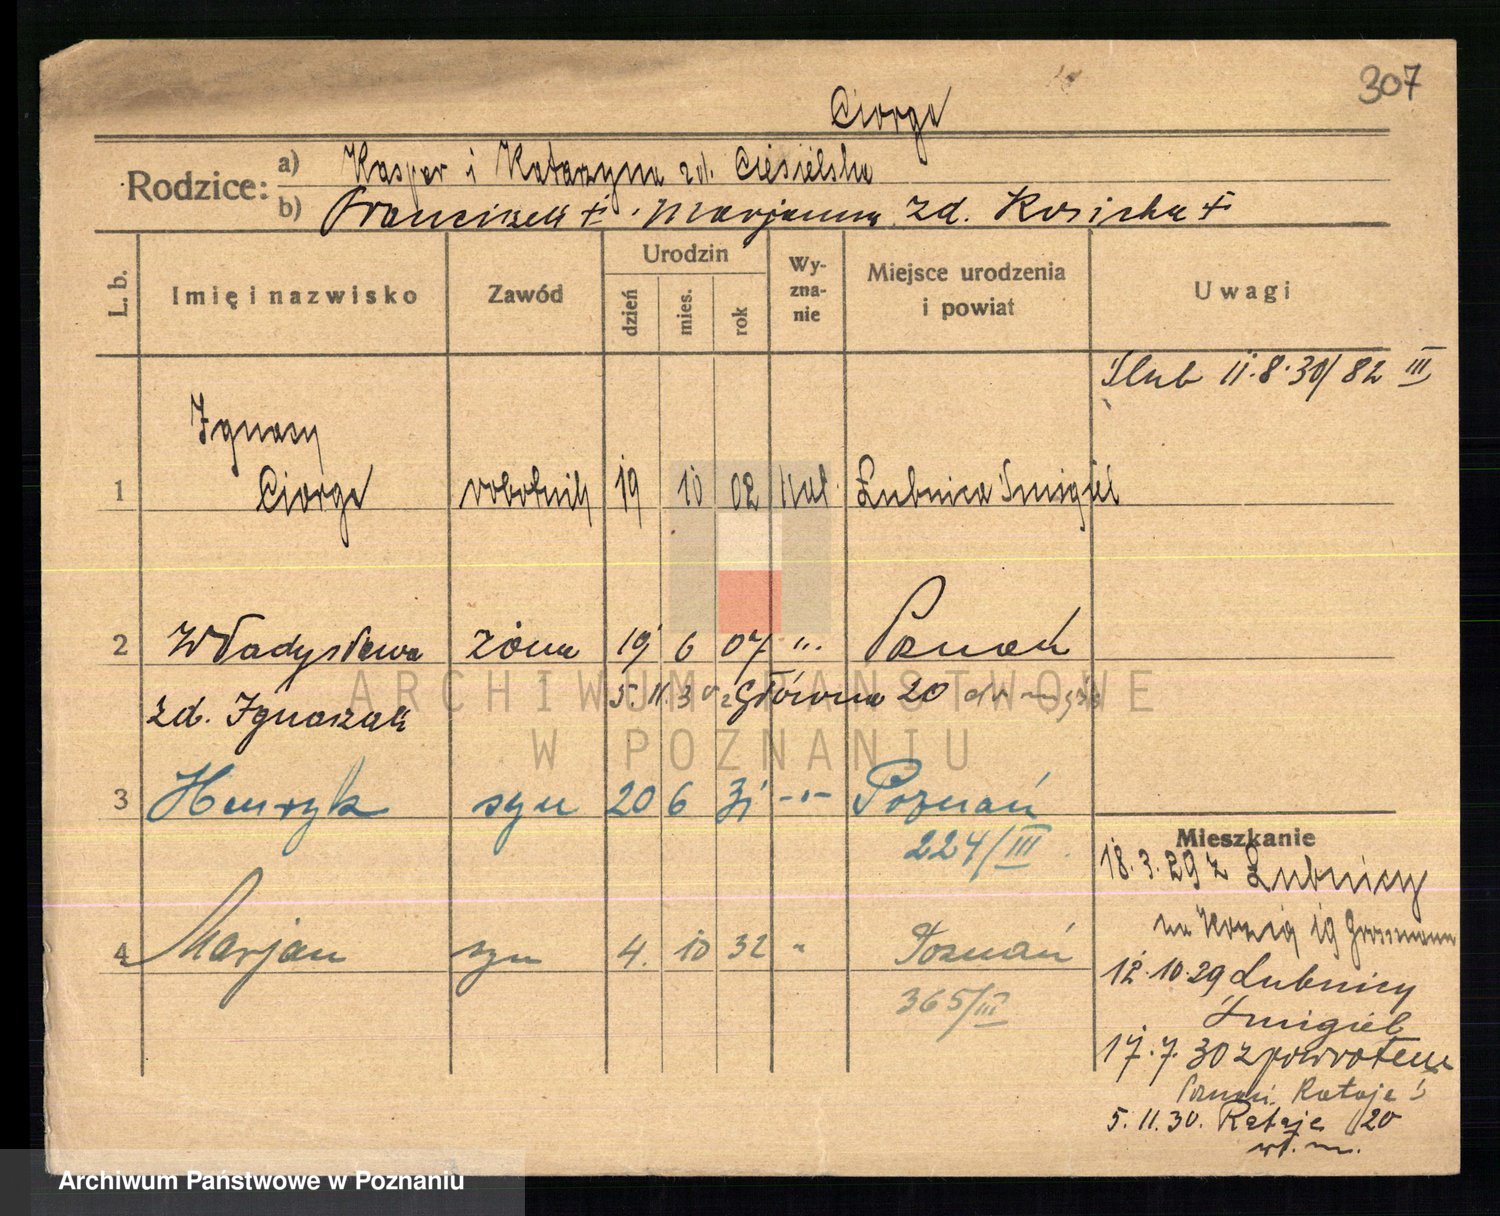 307
Ciorga
Rodzice:
a) Kasper i Katarzyna zd. Ciesielska
b) Franciszek + Marjanna zd. Kosicka +
L. b.
Imię i nazwisko
Zawód
Urodzin
dzień
mies.
rok
Wy-
zna-
nie
Miejsce urodzenia
i powiat
Uwagi
Ślub 11.8.30/82 III
1 Ignacy
Ciorga robotnik 19 10 02 kat. Łubnica Śmigiel
2 Władysława żona 19 6 07 " Poznań
zd. Ignaszak 5.11.30 z Główna 20 do męża
3 Henryk syn 20 6 31 -"- Poznań
224/III
4 Marjan syn 4. 10 32 " Poznań
365/III
Mieszkanie
18.3.29 z Łubnicy
na 19 Grossmann
12.10.29 Łubnicy
Śmigiel
17.7.30 z powrotem
Poznań Rataje
5.11.30. Rataje 120
wł. m.
ARCHIWUM PAŃSTWOWE
W POZNANIU
Archiwum Państwowe w Poznaniu